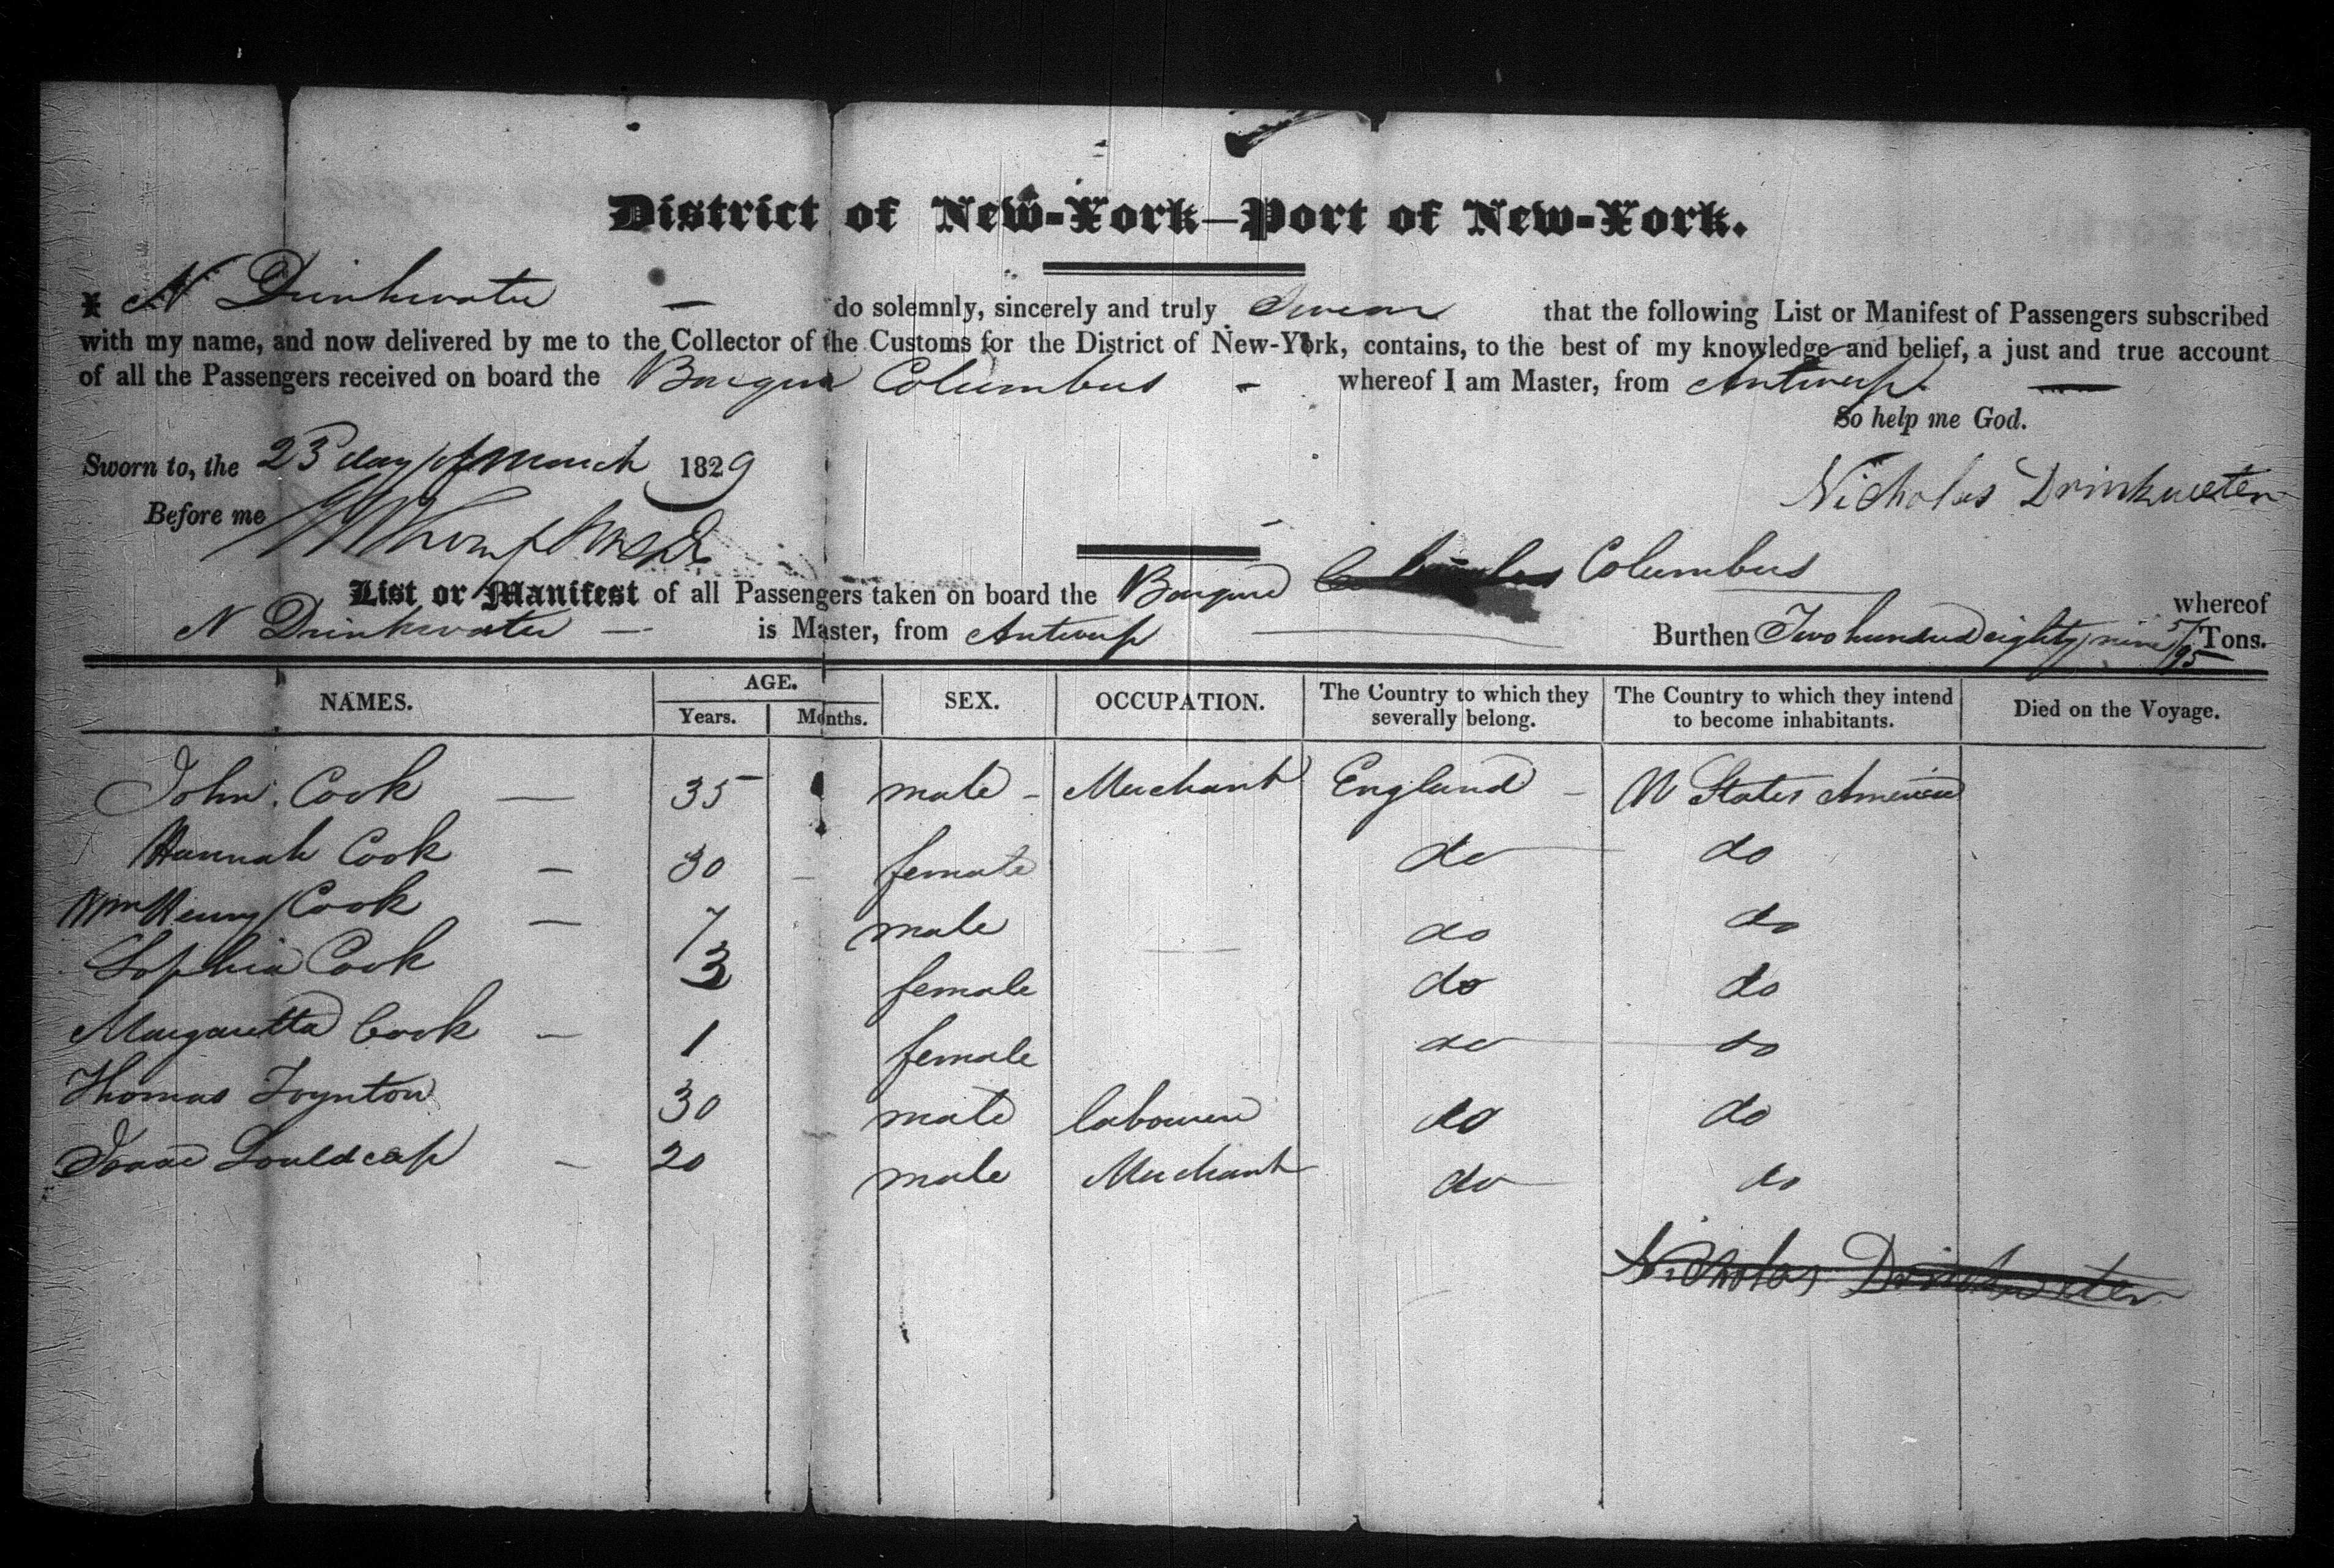 District of New-York—Port of New-York.
I, N Drinkwater — do solemnly, sincerely and truly Swear that the following List or Manifest of Passengers subscribed
with my name, and now delivered by me to the Collector of the Customs for the District of New-York, contains, to the best of my knowledge and belief, a just and true account
of all the Passengers received on board the Barque Columbus - whereof I am Master, from Antwerp. —
So help me God.
Sworn to, the 23 day of March 1829
Nicholas Drinkwater
Before me
List or Manifest of all Passengers taken on board the Barque Columbus whereof
N Drinkwater — is Master, from Antwerp — Burthen Two hundred eighty nine 57/95 Tons.
NAMES. AGE. Years. Months. SEX. OCCUPATION. The Country to which they severally belong. The Country to which they intend to become inhabitants. Died on the Voyage.
John Cook — 35 male - Merchant England - U States America
Hannah Cook — 30 - female do do
Wm Henry Cook — 7 male do do
Sophia Cook 3 female do do
Margaretta Cook — 1 female do do
Thomas Toynton 30 male labourer do do
Isaac Gouldcap — 20 male Merchant do do
Nicholas Drinkwater